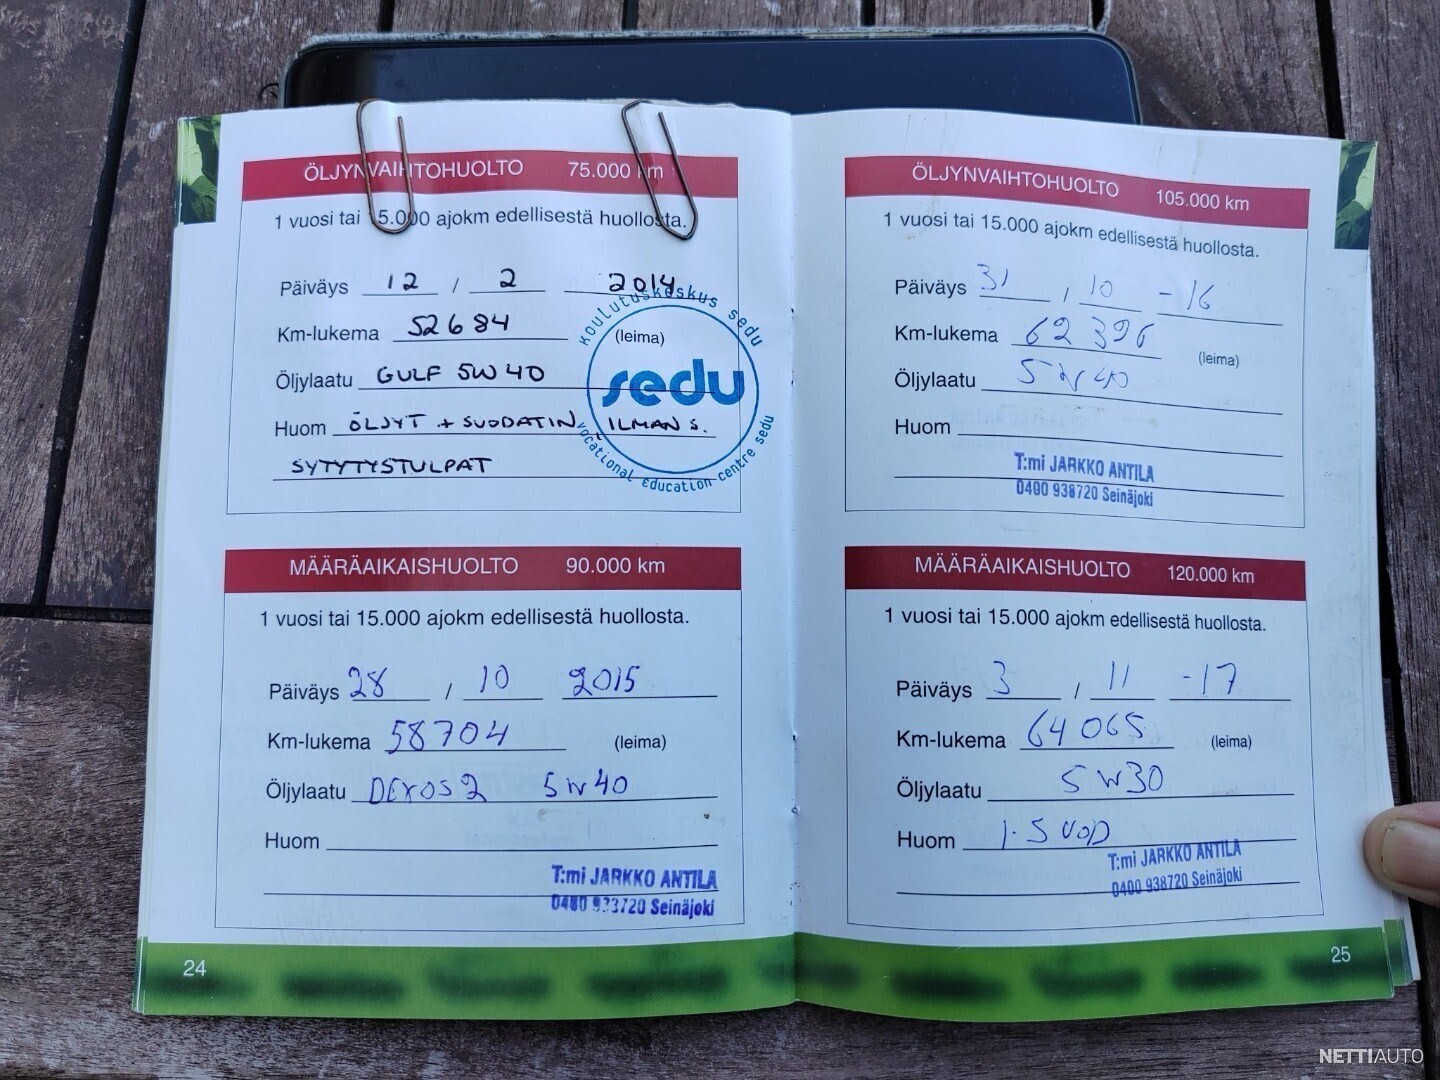 ÖLJYNVAIHTOHUOLTO 75.000 km
1 vuosi tai 15.000 ajokm edellisestä huollosta.
Päiväys 12 / 2 2014
Km-lukema 52684 (leima)
Öljylaatu GULF 5W40
Huom ÖLJYT + SUODATIN ILMAN S.
SYTYTYSTULPAT
koulutuskeskus sedu
sedu
vocational education centre sedu
MÄÄRÄAIKAISHUOLTO 90.000 km
1 vuosi tai 15.000 ajokm edellisestä huollosta.
Päiväys 28 / 10 2015
Km-lukema 58704 (leima)
Öljylaatu DEXOS2 5W40
Huom
T:mi JARKKO ANTILA
Seinäjoki
24
ÖLJYNVAIHTOHUOLTO 105.000 km
1 vuosi tai 15.000 ajokm edellisestä huollosta.
Päiväys 31 / 10 -16
Km-lukema 62396 (leima)
Öljylaatu 5W40
Huom
T:mi JARKKO ANTILA
0400 938720 Seinäjoki
MÄÄRÄAIKAISHUOLTO 120.000 km
1 vuosi tai 15.000 ajokm edellisestä huollosta.
Päiväys 3 / 11 -17
Km-lukema 64065 (leima)
Öljylaatu 5W30
Huom
T:mi JARKKO ANTILA
0400 938720 Seinäjoki
25
NETTIAUTO